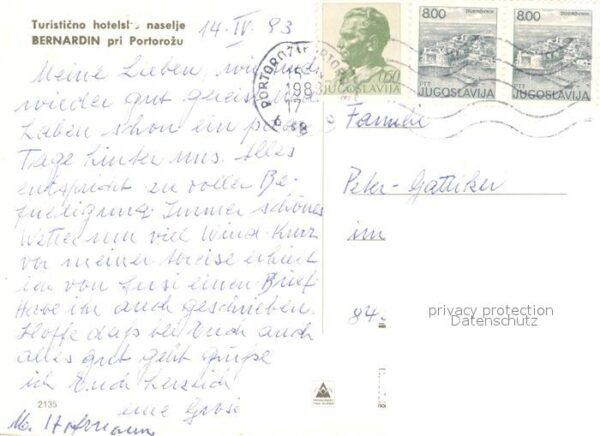 Turistično hotelsko naselje
BERNARDIN pri Portorožu
14. IV. 83
8.00
8.00
0.60
JUGOSLAVIJA
PTT JUGOSLAVIJA
PTT JUGOSLAVIJA
PORTOROŽ
Meine Lieben, wir sind
wieder gut gereist und
haben schon ein paar
Tage hinter uns. Alles
entspricht zu voller Be-
friedigung. Immer schönes
Wetter nur viel Wind. Kurz
vor meiner Abreise erhielt
ich von Susi einen Brief
Habe ihr auch geschrieben.
Hoffe daß bei Euch auch
alles gut geht grüße
ich Euch herzlich
eure Grosi
Familie
Peter-Gattiker
im
84
privacy protection
Datenschutz
2135